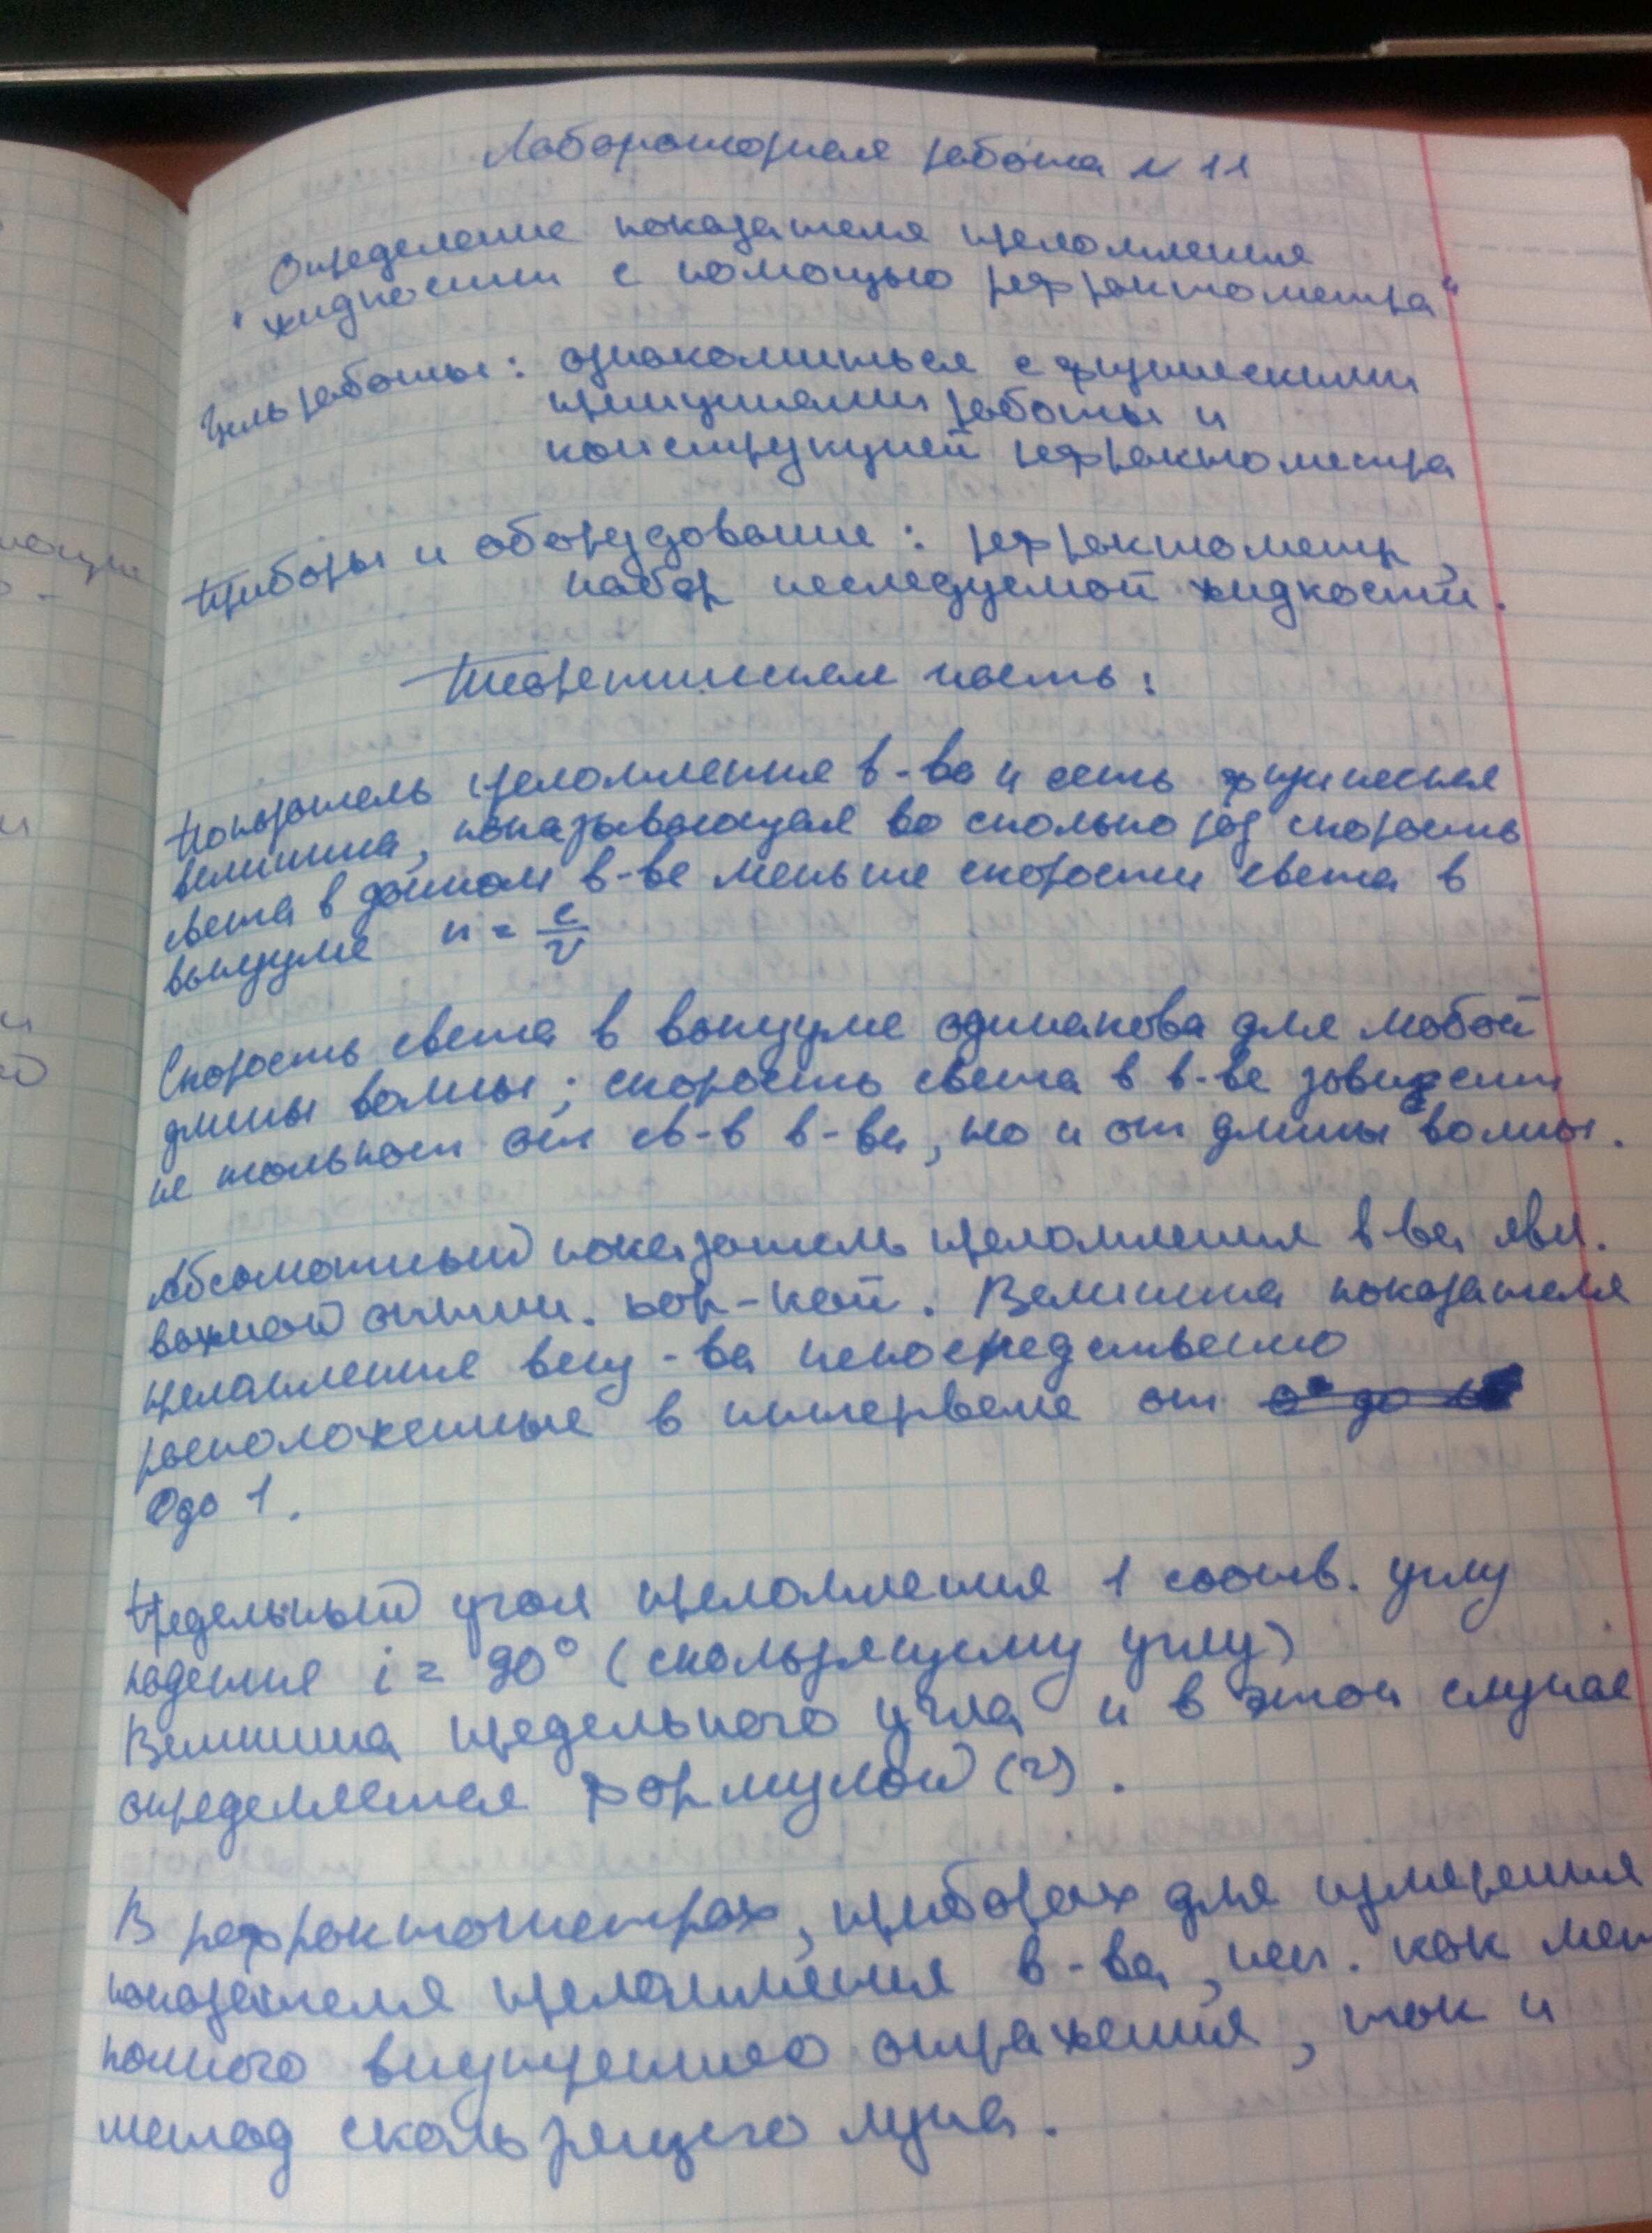 Лабораторная работа N 11
Определение показателя преломления
"жидкости с помощью рефрактометра"
Цель работы: ознакомиться с физическими
принципами работы и
конструкцией рефрактометра
Приборы и оборудование: рефрактометр,
набор исследуемой жидкости.
Теоретическая часть:
Показатель преломления в-ва n есть физическая
величина, показывающая во сколько раз скорость
света в данном в-ве меньше скорости света в
вакууме n = c/v
Скорость света в вакууме одинакова для любой
длины волны; скорость света в в-ве зависит
не только от св-в в-ва, но и от длины волны.
Абсолютный показатель преломления в-ва явл.
важной оптич. хар-кой. Величина показателя
преломления вещ-ва непосредственно
расположенные в интервале от
0 до 1.
Предельный угол преломления 1 соотв. углу
падения i = 90° (скользящему углу)
Величина предельного угла и в этом случае
определяется формулой (2).
В рефрактометрах, приборах для измерения
показателя преломления в-ва, исп. как мет
полного внутреннего отражения, так и
метод скользящего луча.